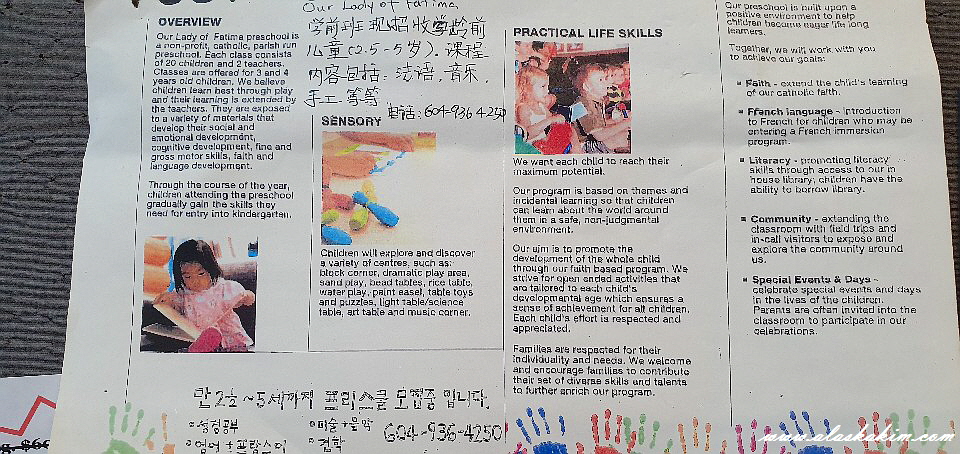 OVERVIEW
Our Lady of Fatima preschool is
a non-profit, catholic, parish run
preschool. Each class consists
of 20 children and 2 teachers.
Classes are offered for 3 and 4
years old children. We believe
children learn best through play
and their learning is extended by
the teachers. They are exposed
to a variety of materials that
develop their social and
emotional development,
cognitive development, fine and
gross motor skills, faith and
language development.
Through the course of the year,
children attending the preschool
gradually gain the skills they
need for entry into kindergarten.
Our Lady of Fatima
学前班现招收学龄前
儿童(2.5-5岁).课程
内容包括:法语.音乐.
手工.等等.
电话:604-936 4250
SENSORY
Children will explore and discover
a variety of centres, such as:
block corner, dramatic play area,
sand play, bead tables, rice table,
water play, paint easel, table toys
and puzzles, light table/science
table, art table and music corner.
PRACTICAL LIFE SKILLS
We want each child to reach their
maximum potential.
Our program is based on themes and
incidental learning so that children
can learn about the world around
them in a safe, non-judgmental
environment.
Our aim is to promote the
development of the whole child
through our faith based program. We
strive for open ended activities that
are tailored to each child's
developmental age which ensures a
sense of achievement for all children.
Each child's effort is respected and
appreciated.
Families are respected for their
individuality and needs. We welcome
and encourage families to contribute
their set of diverse skills and talents
to further enrich our program.
Our preschool is built upon a
positive environment to help
children become eager life long
learners.
Together, we will work with you
to achieve our goals:
▪ Faith - extend the child's learning
of our catholic faith.
▪ French language - introduction
to French for children who may be
entering a French immersion
program.
▪ Literacy - promoting literacy
skills through access to our in
house library; children have the
ability to borrow library.
▪ Community - extending the
classroom with field trips and
in-call visitors to expose and
explore the community around
us.
▪ Special Events & Days -
celebrate special events and days
in the lives of the children.
Parents are often invited into the
classroom to participate in our
celebrations.
만 2½~5세까지 프리스쿨 모집중 입니다.
◦성경공부 ◦미술+음악 604-936-4250
◦영어+프랑스어 ◦과학
www.alaskakim.com